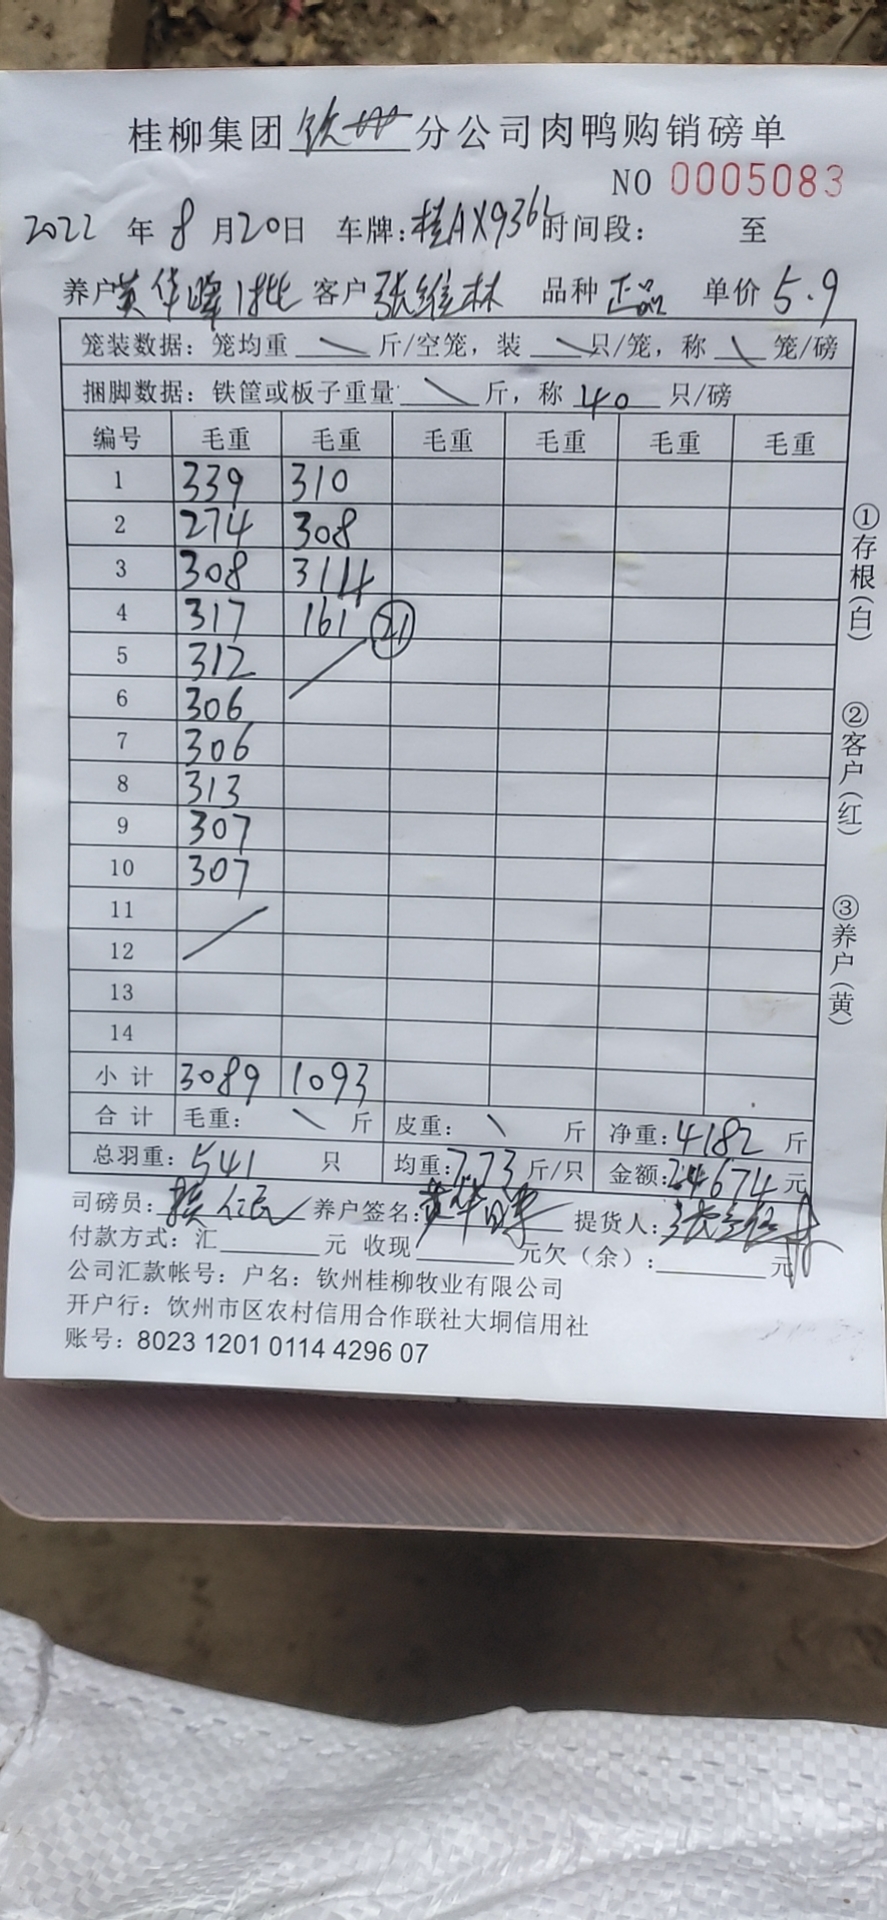 桂柳集团钦州分公司肉鸭购销磅单
NO 0005083
2022年8月20日 车牌:桂AX9362时间段: 至
养户黄华峰1批 客户张维林 品种正品 单价5.9
笼装数据: 笼均重 \ 斤/空笼, 装 \ 只/笼, 称 \ 笼/磅
捆脚数据: 铁筐或板子重量 \ 斤, 称 40 只/磅
编号 毛重 毛重 毛重 毛重 毛重 毛重
1 339 310
2 274 308
3 308 314
4 317 161 (21)
5 312
6 306
7 306
8 313
9 307
10 307
11
12
13
14
小计 3089 1093
合计 毛重: \ 斤 皮重: \ 斤 净重:4182 斤
总羽重: 541 只 均重:7.73斤/只 金额:24674元
司磅员: 仁民 养户签名:黄华峰 提货人:张维林
付款方式: 汇 元 收现 元欠(余): 元
公司汇款帐号: 户名: 钦州桂柳牧业有限公司
开户行: 钦州市区农村信用合作联社大垌信用社
账号: 8023 1201 0114 4296 07
①存根(白)
②客户(红)
③养户(黄)